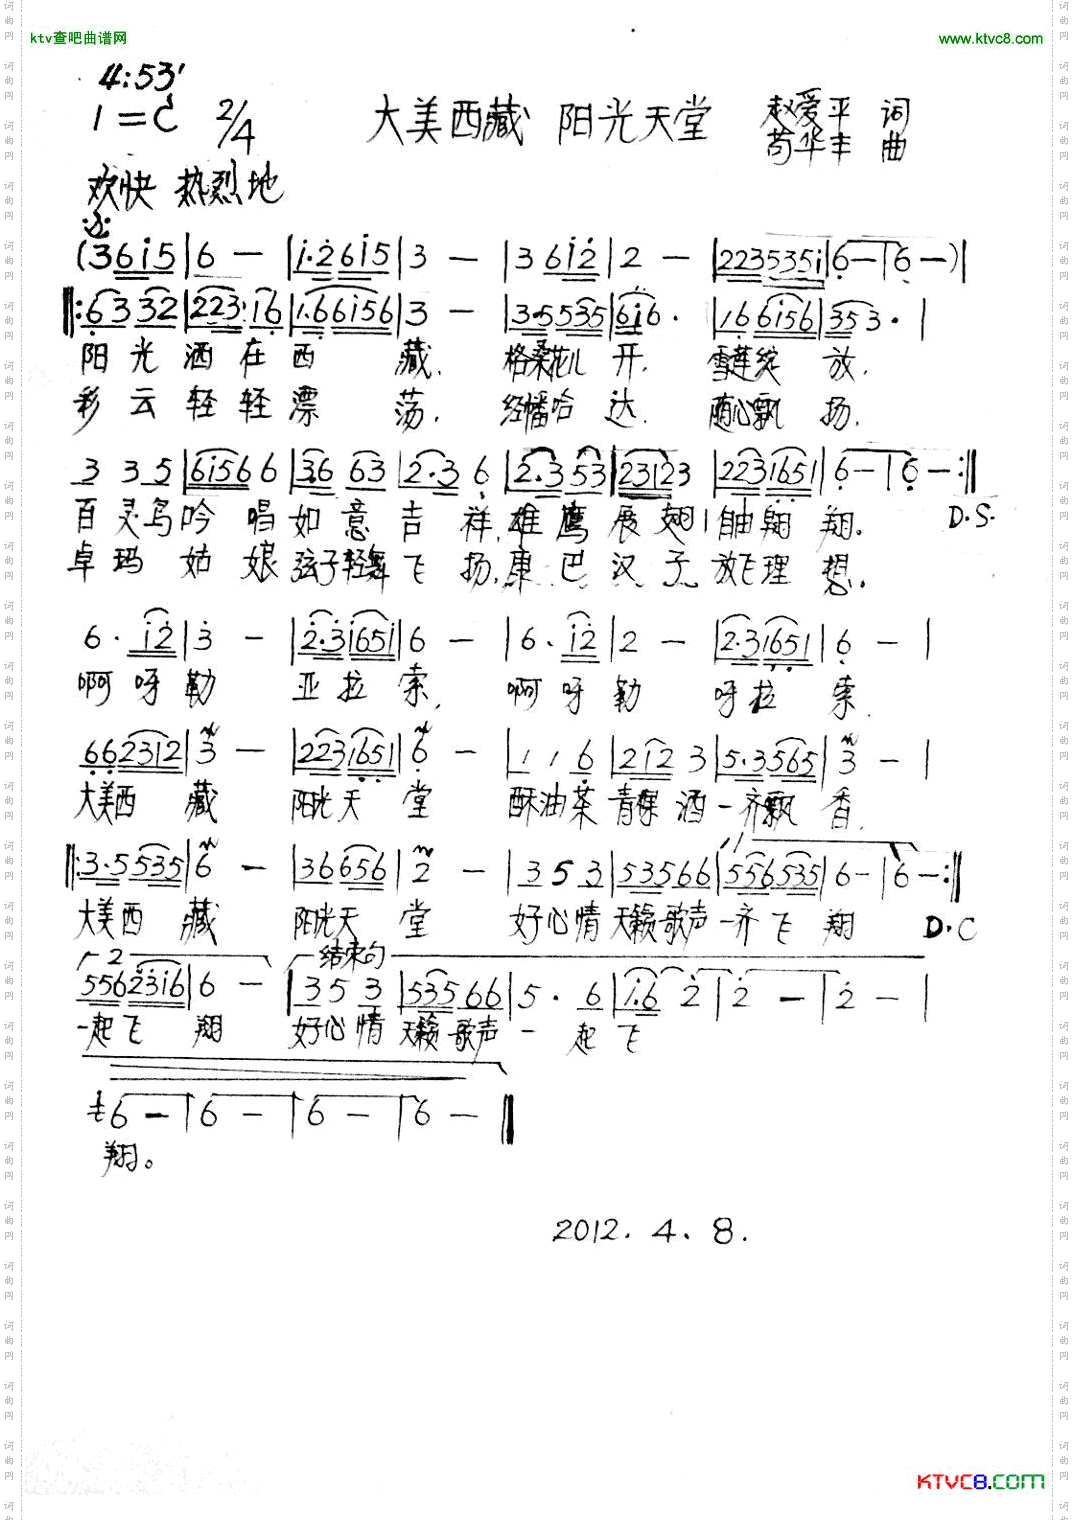 ktv查吧曲谱网 www.ktvc8.com
4:53'
1=C 2/4 大美西藏 阳光天堂 赵爱平 词
苟华丰 曲
欢快 热烈地
(36i5|6 -|i·26i5|3 -|36i2|2 -|223535i|6-|6-)|
‖:6332|223·16|1·66i56|3 -|3·5535|6i6·|166i56|353·|
阳光洒在西藏, 格桑花儿开, 雪莲绽放,
彩云轻轻漂荡, 经幡哈达 随心飘扬.
3 35|6i566|3663|2·36|2·353|23123|2231651|6-|6-:‖
百灵鸟吟唱如意吉祥,雄鹰展翅自由翱翔。 D.S.
卓玛姑娘弦子轻舞飞扬,康巴汉子放飞理想。
6·i2|3 -|2·3i65i|6 -|6·i2|2 -|2·31651|6 -|
啊呀勒 亚拉索, 啊呀勒 呀拉索
662312|3 -|2231651|6 -|116|2123|5·3565|3 -|
大美西藏 阳光天堂 酥油茶青稞酒一齐飘香.
‖:3·5535|6 -|36656|2 -|353|53566|556535|6-|6-:‖
大美西藏 阳光天堂 好心情天籁歌声一齐飞翔 D.C
2 结束句
5562316|6 -|353|53566|5·6|i·62|2 -|2 -|
一起飞翔 好心情天籁歌声一起飞
6-|6-|6-|6-‖
翔。
2012.4.8.
KTVC8.COM
词曲网